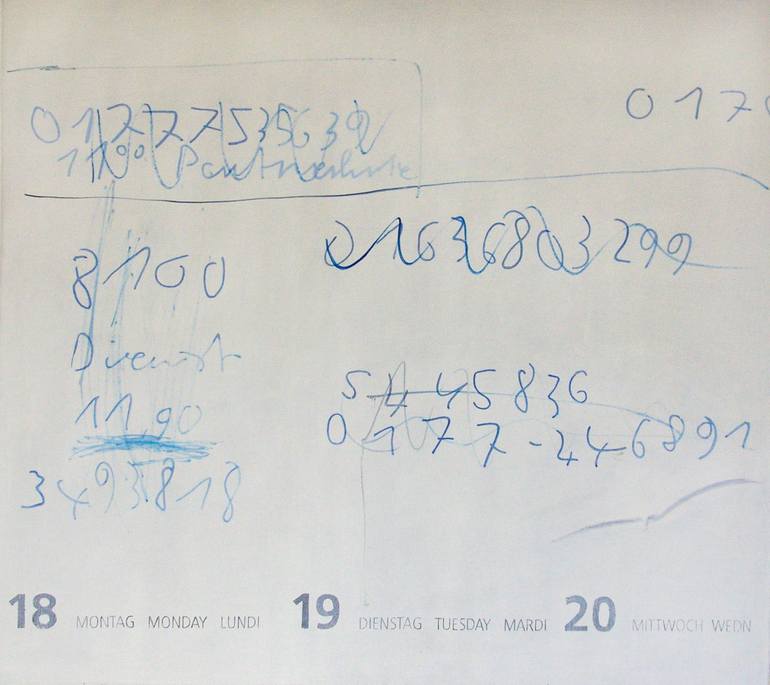 01777535639
017
1190 Partnerlinie
01636803299
8100
Dienst
11,90
5445836
0177-246891
3493818
18 MONTAG MONDAY LUNDI 19 DIENSTAG TUESDAY MARDI 20 MITTWOCH WEDN